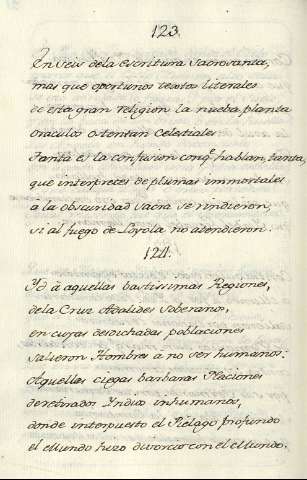 123.
En seis dela Escritura Sacrosanta,
mas que oportunos textos literales
de esta gran religion la nueba planta
oraculos ostentan Celestiales:
Tanta es la confusion conqe. hablan, tanta,
que interpretes de plumas immortales
â la obscuridad sacra se rindieron,
si al fuego de Loyola no atendieron.
124.
Yd â aquellas bastissimas Regiones,
dela Cruz Adalides Soberanos,
en cuyas desdichadas poblaciones
salieron Hombres â no ser humanos:
Aquellas ciegas barbaras Naciones
deretirados Yndios inhumanos,
donde interpuesto el Pielago profundo
el Mundo hizo divorcio con el Mundo.